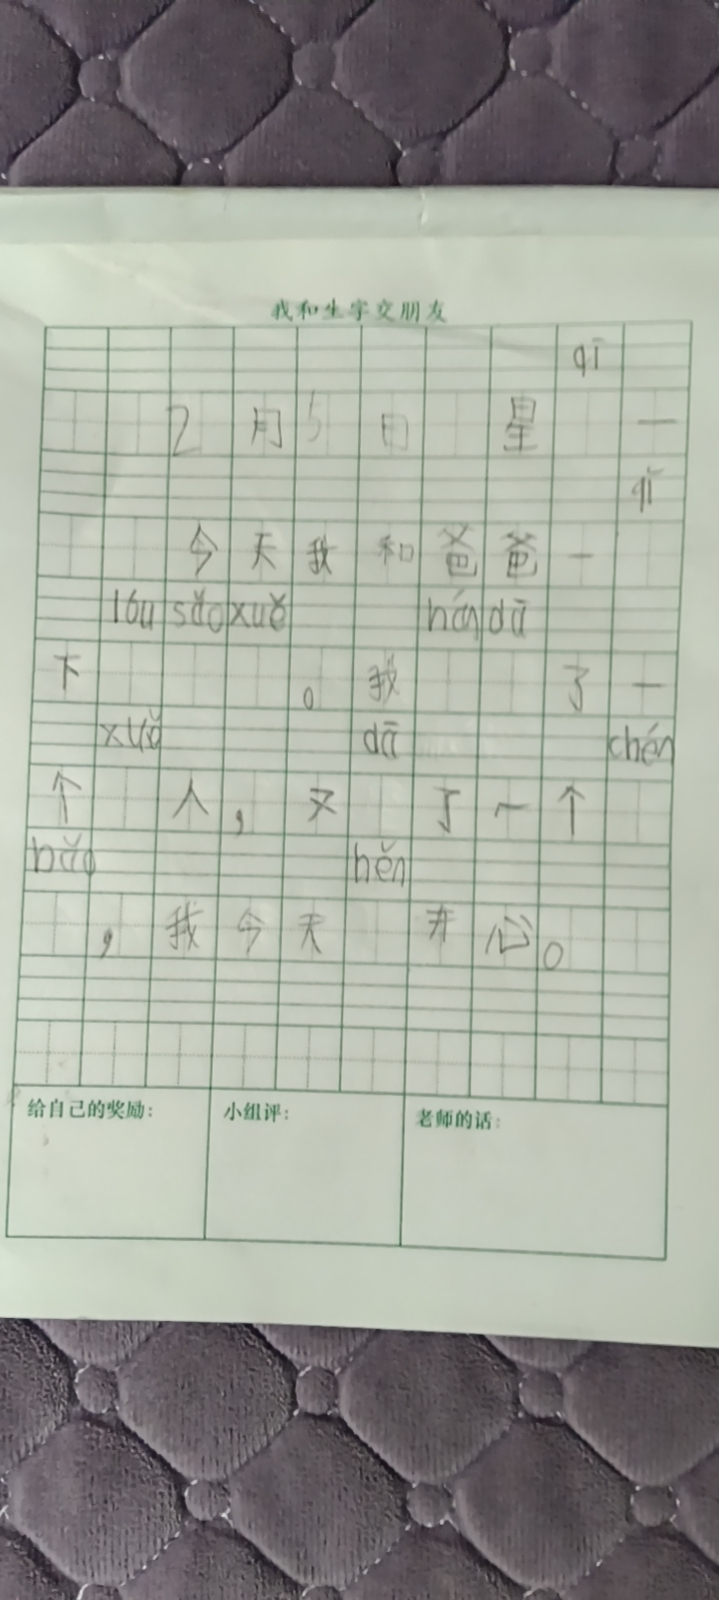 我和生字交朋友
qī
2月5日 星 一
qǐ
今天我和爸爸一
lóu sǎo xuě hán dā
下 。我 了一
xuě dā chén
个 人,又 了一个
bǎo hěn
,我今天 开心。
给自己的奖励: 小组评: 老师的话: